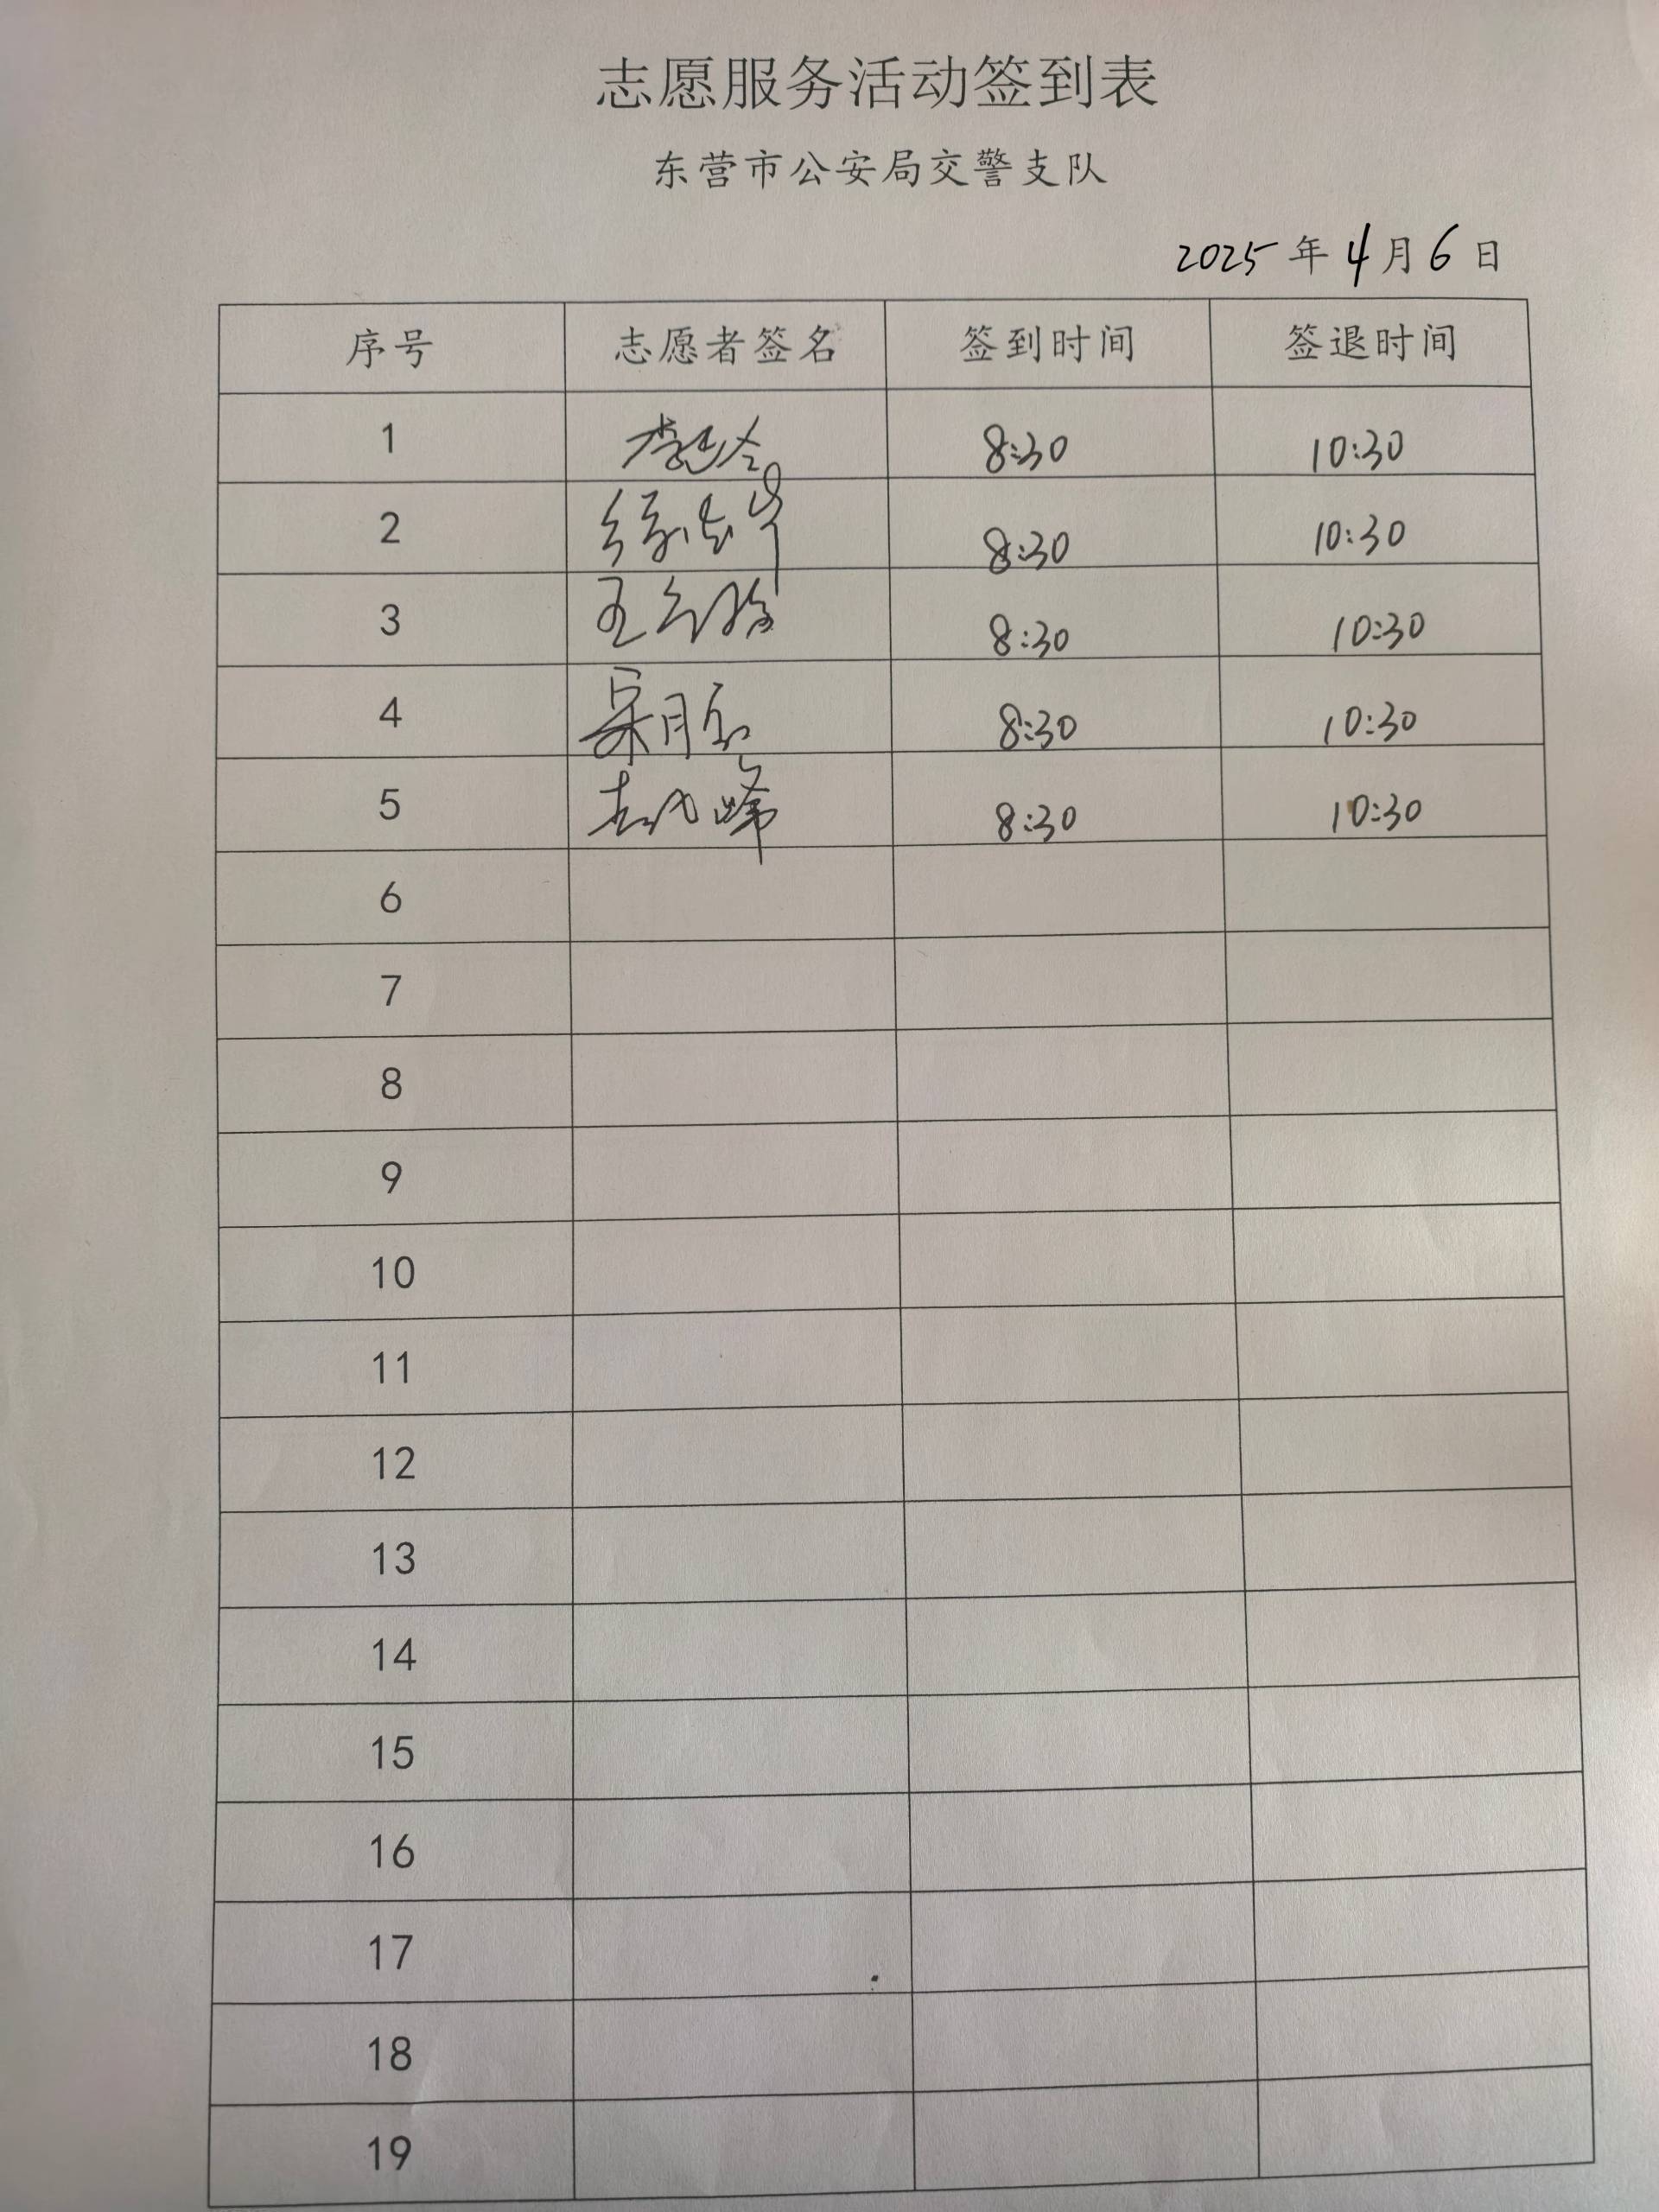 志愿服务活动签到表
东营市公安局交警支队
2025年4月6日
序号 志愿者签名 签到时间 签退时间
1 8:30 10:30
2 8:30 10:30
3 王 8:30 10:30
4 宋月 8:30 10:30
5 峰 8:30 10:30
6
7
8
9
10
11
12
13
14
15
16
17
18
19